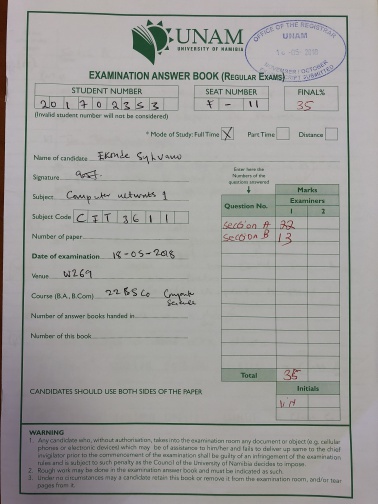 UNAM
UNIVERSITY OF NAMIBIA
OFFICE OF THE REGISTRAR
UNAM
EXAMINATION ANSWER BOOK (REGULAR EXAMS)
STUDENT NUMBER SEAT NUMBER FINAL%
201702353 F - 11 35
(Invalid student number will not be considered)
* Mode of Study: Full Time X Part Time Distance
Name of candidate
Signature
Enter here the Numbers of the questions answered
Subject Computer networks 1
Marks
Question No. Examiners
1 2
Subject Code CIT3611
Section A 22
Number of paper
Section B 13
Date of examination 18-05-2018
Venue W269
Course (B.A., B.Com) 22BSCo Computer Science
Number of answer books handed in
Number of this book
Total 35
CANDIDATES SHOULD USE BOTH SIDES OF THE PAPER
Initials
WARNING
1. Any candidate who, without authorisation, takes into the examination room any document or object (e.g. cellular
phones or electronic devices) which may be of assistance to him/her and fails to deliver up same to the chief
invigilator prior to the commencement of the examination shall be guilty of an infringement of the examination
rules and is subject to such penalty as the Council of the University of Namibia decides to impose.
2. Rough work may be done in the examination answer book and must be indicated as such.
3. Under no circumstances may a candidate retain this book or remove it from the examination room, and/or tear
pages from it.